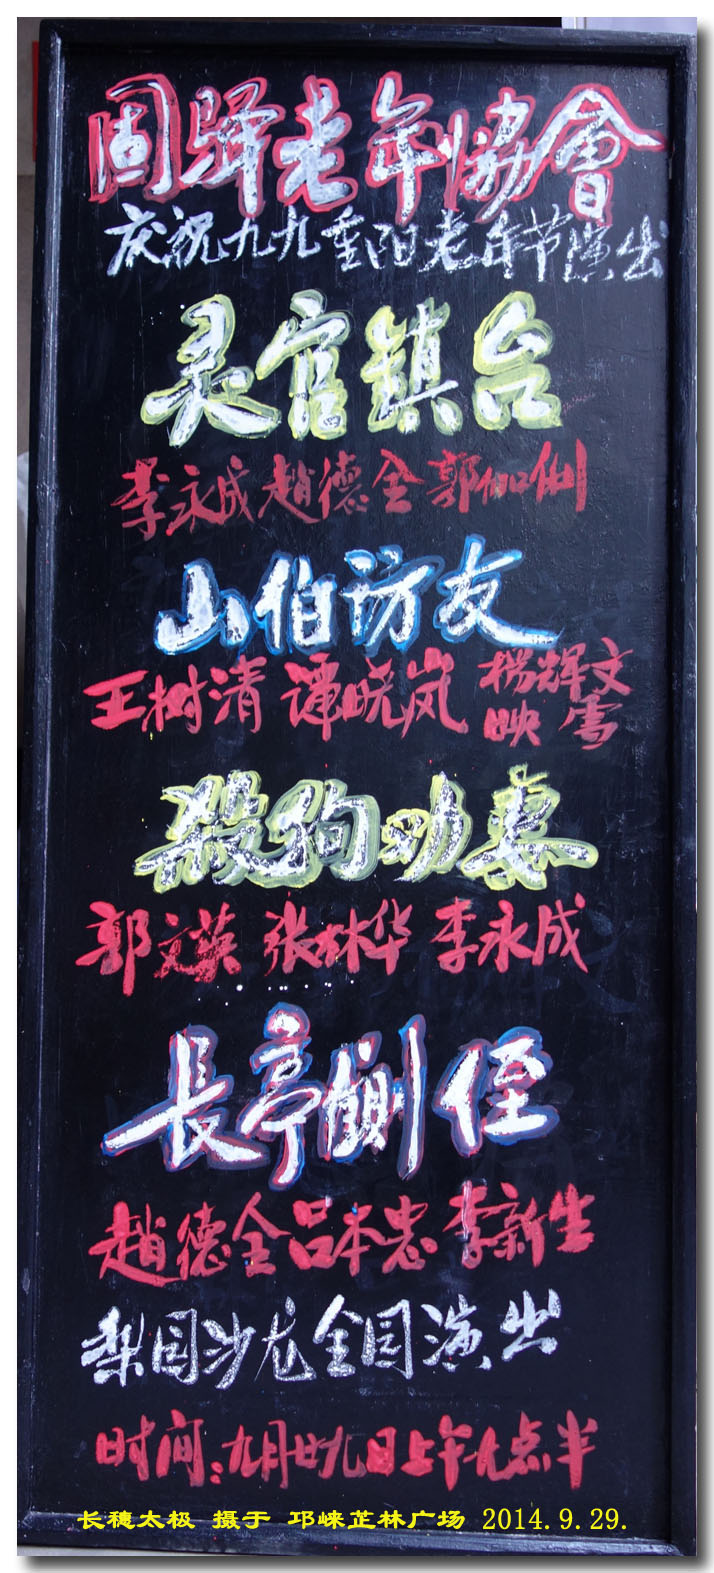 固驿老年协會
庆祝九九重阳老年节演出
灵官镇台
李永成 赵德全 郭加俐
山伯访友
王树清 谭晓岚 杨辉文
映雪
殺狗劝妻
郭文英 张林华 李永成
長亭侧侄
趙德全 吕本忠 李新生
梨园沙龙全国演出
时间:九月廿九日上午九点半
长穗太极 摄于 邛崃芷林广场 2014.9.29.